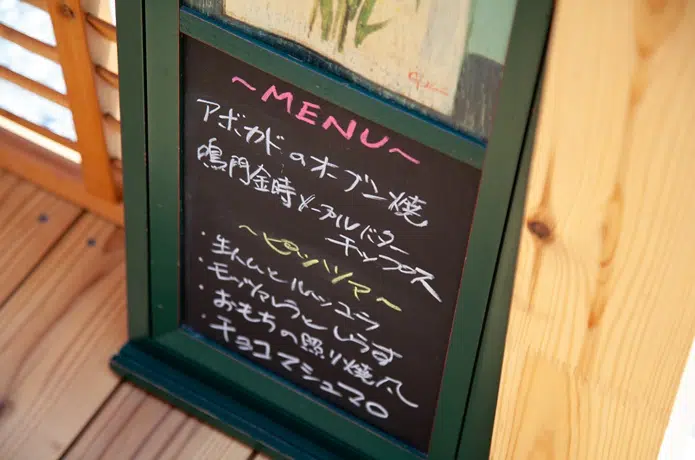 ~MENU~
アボカドのオーブン焼
鳴門金時メープルバター
チップス
~ピッツァ~
・生ハムとルッコラ
・モッツァレラとしらす
・おもちの照り焼風
・チョコマシュマロ